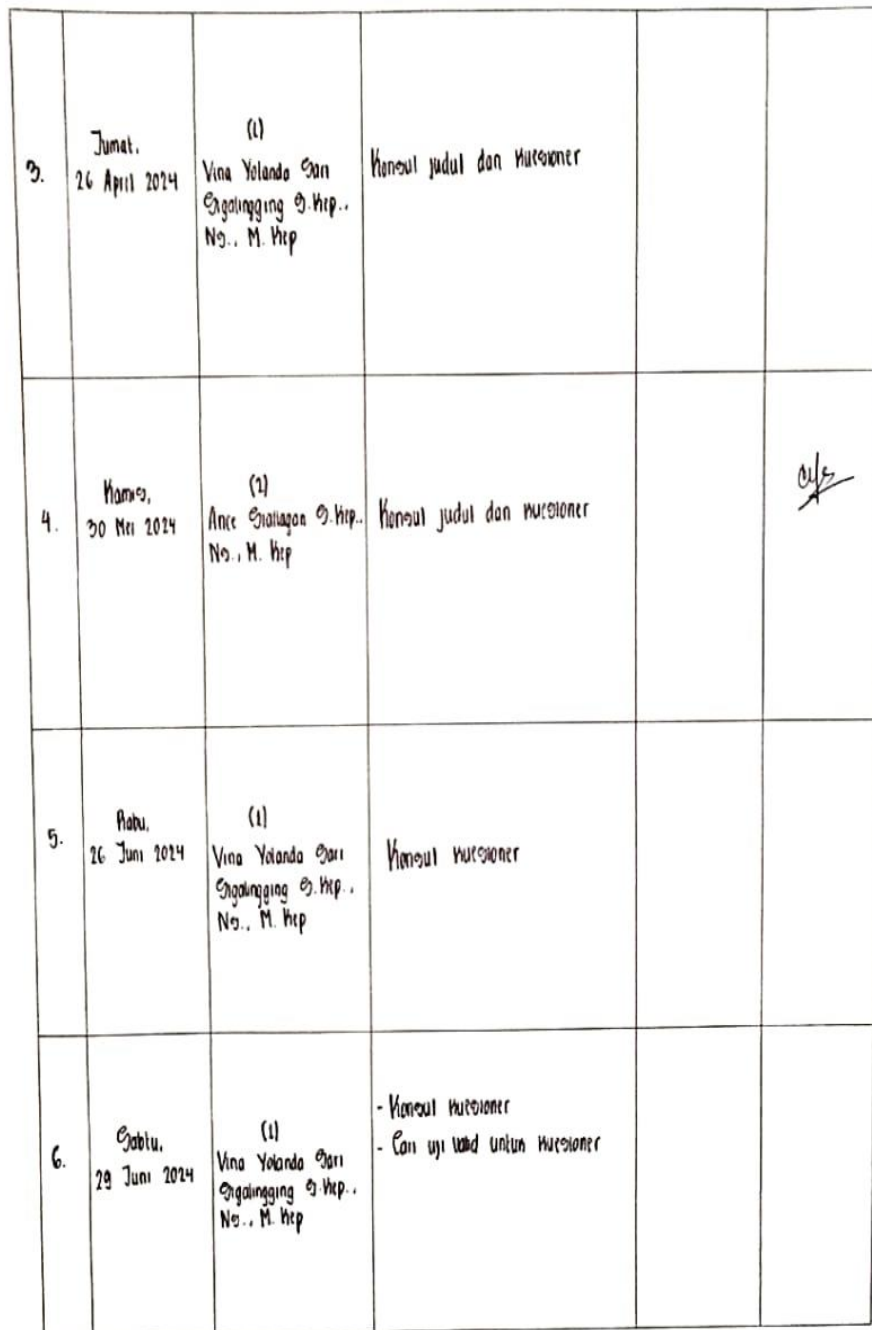 3.
Jumat,
26 April 2024
(1)
Vina Yolanda Sari
Sigalingging S.Kep.,
Ns., M. Kep
Konsul judul dan kuesioner
4.
Kamis,
30 Mei 2024
(2)
Ance Siallagan S.Kep.,
Ns., M. Kep
Konsul judul dan kuesioner
5.
Rabu,
26 Juni 2024
(1)
Vina Yolanda Sari
Sigalingging S.Kep.,
Ns., M. Kep
Konsul kuesioner
6.
Sabtu,
29 Juni 2024
(1)
Vina Yolanda Sari
Sigalingging S.Kep.,
Ns., M. Kep
- Konsul kuesioner
- Cari uji valid untuk kuesioner